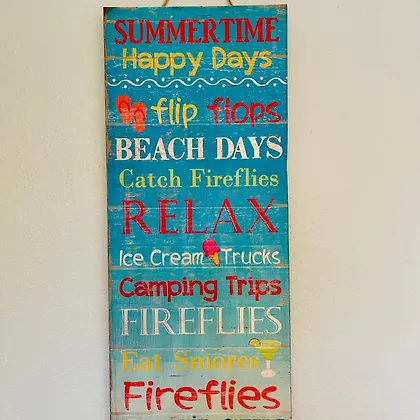 SUMMERTIME
Happy Days
flip flops
BEACH DAYS
Catch Fireflies
RELAX
Ice Cream Trucks
Camping Trips
FIREFLIES
Eat Smores
Fireflies